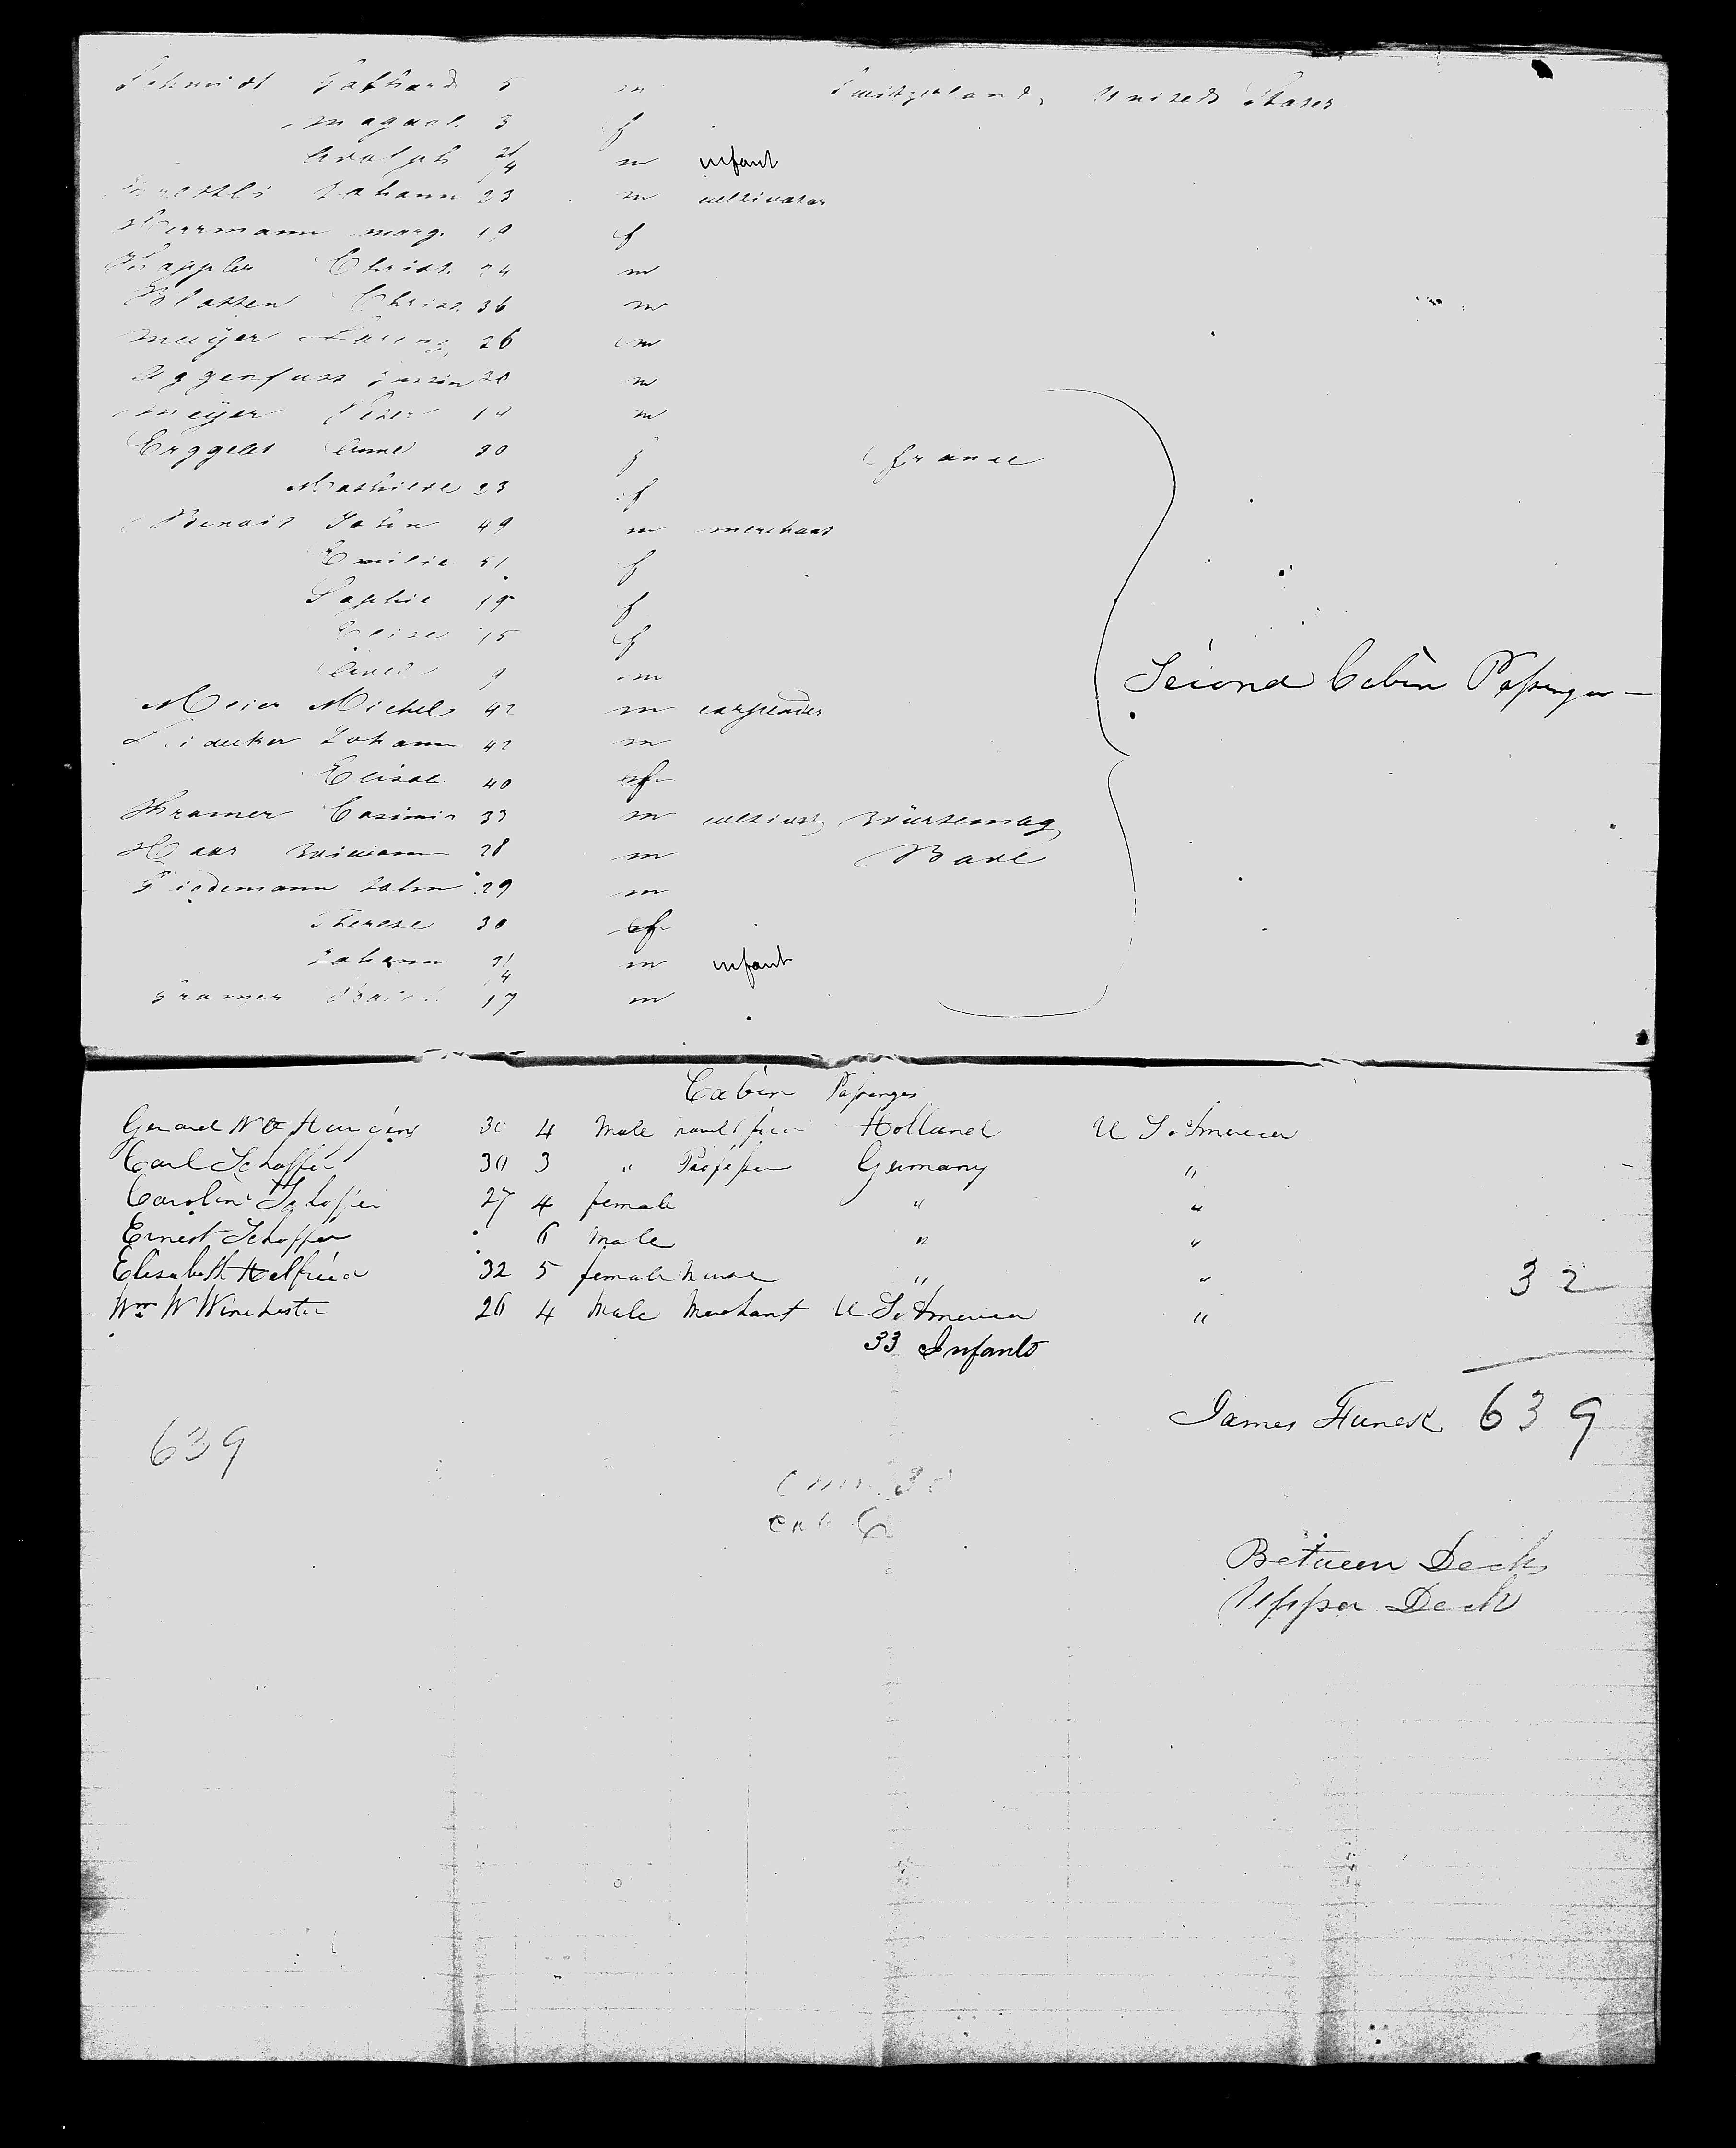 Schmidt Gebhard 5 m Switzerland, United States
Magdal. 3 f
Adolph 3/4 m infant
Johann 23 m cultivator
Herrmann Marg. 19 f
Kappler Christ. 24 m
Blatten Christ. 36 m
Meyer Lorenz 26 m
Aggenfuss 20 m
Meyer Peter m
Erggelet Anne 30 f France
Mathilde 23 f
Benoit John 49 m merchant
Emilie 51 f
Sophie 19 f
Elise 15 f
9 m
Second Cabin Passenger
Meier Michel 42 m carpender
Johann 42 m
Elisab. 40 f
Kramer Casimir 33 m cultivat, Würtembg,
Haas William 28 m Bade
Riedemann John 29 m
Therese 30 f
Johann 3/4 m infant
Kramer 17 m
Cabin Passenger
Gerard 30 4 Male Holland U S. America
Carl Schaffer 30 3 " Professor Germany "
Caroline Schaffer 27 4 female " "
Ernest Schaffer 6 Male " "
Elisabeth Helfried 32 5 female Nurse " "
32
Wm W Winchester 26 4 Male Merchant U S. America "
33 Infants
James Funck 639
639
30
Between Deck
Upper Deck